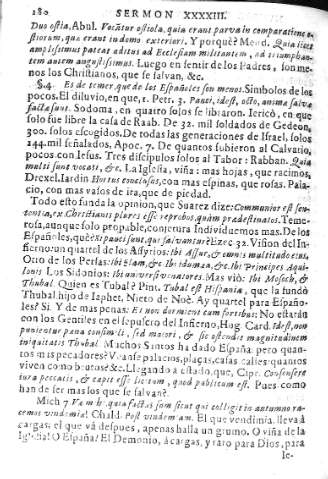 180 SERMON XXXXIII.
Duo ostia, Abul. Vocātur ostiola, quia erant parva in comparatione o-
stiorum, quæ erant in domo exteriori. Y porquè? Mend. Quia licet
amplissimus pateat aditus ad Ecclesiam militantem, ad triumphan-
tem autem angustissimus. Luego en sentir de los Padres, son me-
nos los Christianos, que se salvan, &c.
§.4. Es de temer que de los Españoles son menos. Simbolos de los
pocos. El diluvio, en que, 1. Petr. 3. Pauci, idest, octo, animæ salvæ
factæ sunt. Sodoma, en quatro solos se libraron. Jericò, en que
solo fue libre la casa de Raab. De 32. mil soldados de Gedeon,
300. solos escogidos. De todas las generaciones de Israel, solos
144. mil señalados, Apoc. 7. De quantos subieron al Calvario,
pocos con Jesus. Tres discipulos solos al Tabor: Rabban. Quia
multi sunt vocati, &c. La Iglesia, viña: mas hojas, que racimos,
Drexel. Jardin Hortus conclusus, con mas espinas, que rosas. Pala-
cio, con mas vasos de ira, que de piedad.
Todo esto funda la opinion, que Suarez dize: Communior est sen-
tentia, ex Christianis plures esse reprobos, quàm prædestinatos. Teme-
rosa, aunque solo probable, conjetura. Individuemos mas. De los
Españoles, què? Et pauci sunt, qui salvantur? Ezec 32. Vision del In-
fierno: un quartel de los Assyrios: Ibi Assur, & omnis multitudo eius,
Otro de los Persas: Ibi Elam, &c. Ibi Idumæa, &c. Ibi Principes Aqui-
lonis Los Sidonios: Ibi universi venatores. Mas viò: Ibi Mosoch, &
Thubal. Quien es Tubal? Pint. Tubal est Hispania, que la fundò
Thubal hijo de Iaphet, Nieto de Noè. Ay quartel para Españo-
les? Si. Y de mas penas: Et non dormient cum fortibus: No estaràn
con los Gentiles en el sepulcro del Infierno, Hug. Card. Idest, non
punientur pœna consimili, sed maiori, & sic ostendit magnitudinem
iniquitatis Thubal. Muchos Santos ha dado España: pero quan-
tos mis pecadores? Veanse palacios, plaças, casas, calles: quantos
viven como brutos? &c. Llegando à estado, que, Cipr. Consensere
iura peccatis, & cœpit esse licitum, quod publicum est. Pues como
han de ser mas los que se salvan?
Mich 7. Væ mihi, quia factus sum sicut qui colligit in autumno ra-
cemos vindemiæ! Chald. Post vindemiam. El que vendimia, lleva à
cargas; el que và despues, apenas halla un grumo. O viña de la
Iglesia! O España! El Demonio, à cargas, y raro para Dios, para
Je-